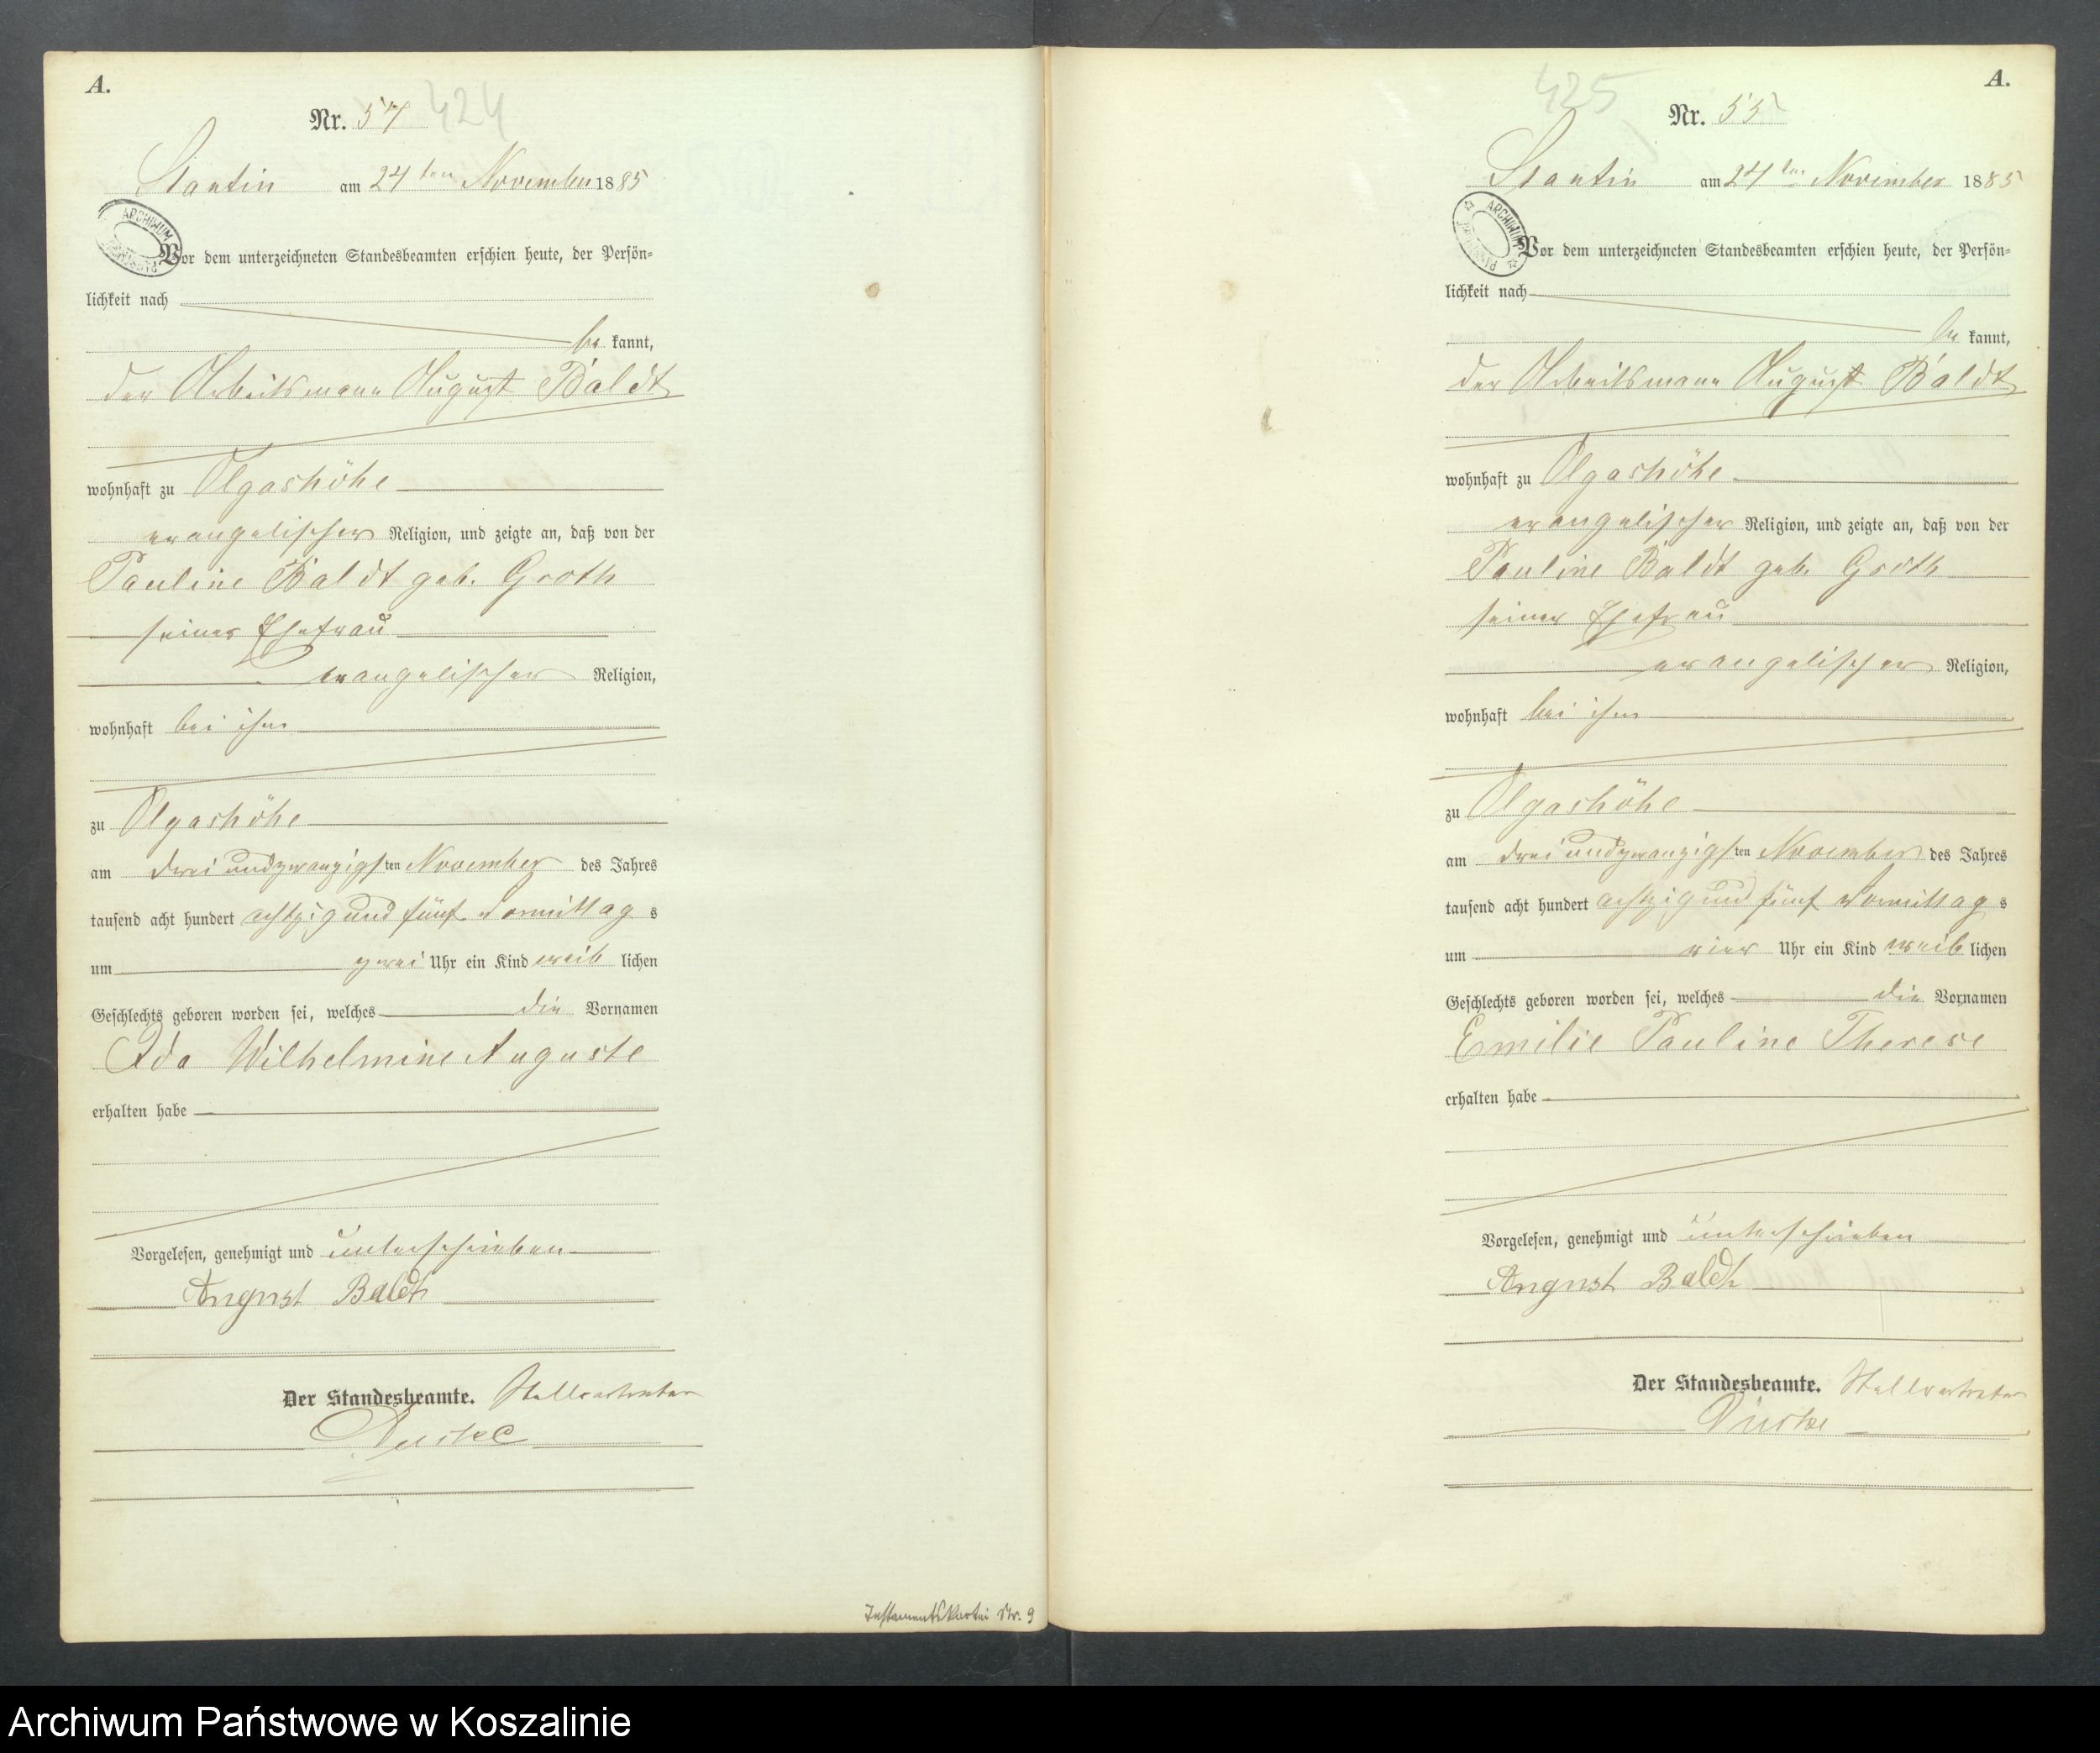 A.
Nr. 54 424
Stantin am 24ten November 1885
ARCHIWUM
Vor dem unterzeichneten Standesbeamten erschien heute, der Persön-
lichkeit nach
be kannt,
der Arbeitsmann August Baldt
wohnhaft zu Olgashöhe
evangelischer Religion, und zeigte an, daß von der
Pauline Baldt geb. Groth
seiner Ehefrau
evangelischer Religion,
wohnhaft bei ihm
zu Olgashöhe
am drei und zwanzigsten November des Jahres
tausend acht hundert achtzig und fünf Vormittags
um zwei Uhr ein Kind weiblichen
Geschlechts geboren worden sei, welches die Vornamen
Ida Wilhelmine Auguste
erhalten habe
Vorgelesen, genehmigt und unterschrieben
August Baldt
Der Standesbeamte. Stellvertreter
Testamentskartei Nr. 9
425
A.
Nr. 55
Stantin am 24ten November 1885
ARCHIWUM
Vor dem unterzeichneten Standesbeamten erschien heute, der Persön-
lichkeit nach
be kannt,
der Arbeitsmann August Baldt
wohnhaft zu Olgashöhe
evangelischer Religion, und zeigte an, daß von der
Pauline Baldt geb. Groth
seiner Ehefrau
evangelischer Religion,
wohnhaft bei ihm
zu Olgashöhe
am drei und zwanzigsten November des Jahres
tausend acht hundert achtzig und fünf Vormittags
um vier Uhr ein Kind weiblichen
Geschlechts geboren worden sei, welches die Vornamen
Emilie Pauline Therese
erhalten habe
Vorgelesen, genehmigt und unterschrieben
August Baldt
Der Standesbeamte. Stellvertreter
Archiwum Państwowe w Koszalinie